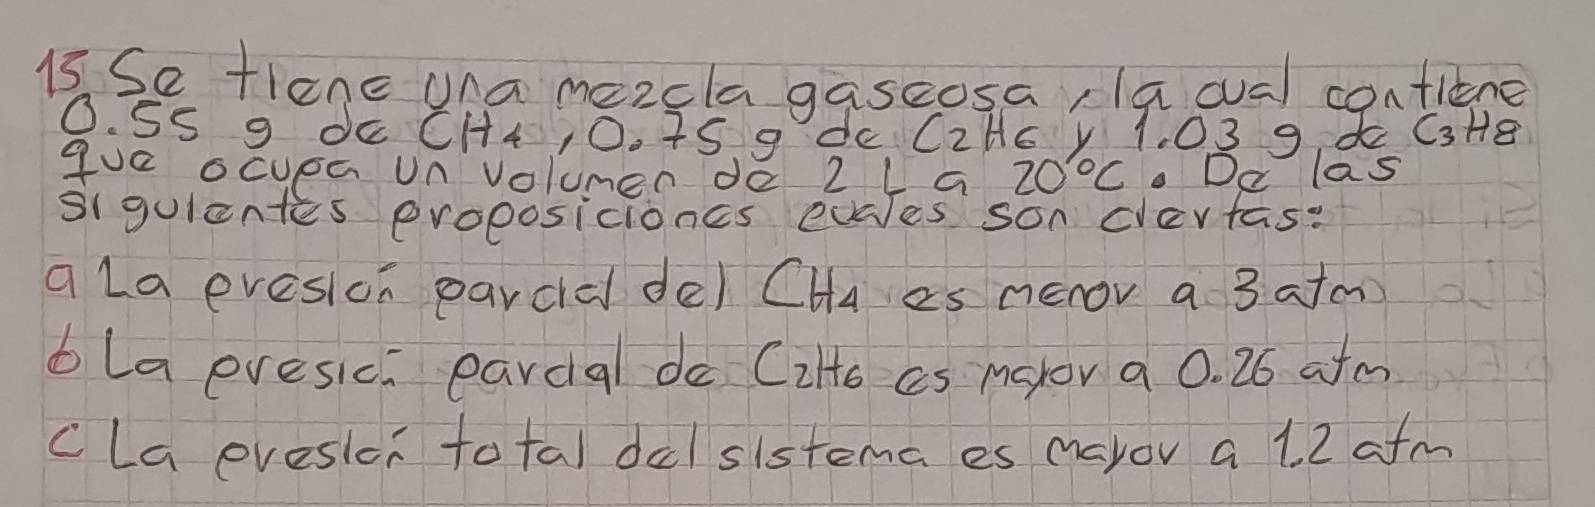 15 Se tiene una mezcla gaseosa, la cual contiene
0.55 g de CH4, 0.75 g de C2H6 y 1.03 g de C3H8
que ocupa un volumen de 2 L a 20°C. De las
siguientes proposiciones cuales son ciertas:
a La presión parcial del CH4 es menor a 3 atm
b La presión parcial de C2H6 es mayor a 0.26 atm
c La presión total del sistema es mayor a 1.2 atm